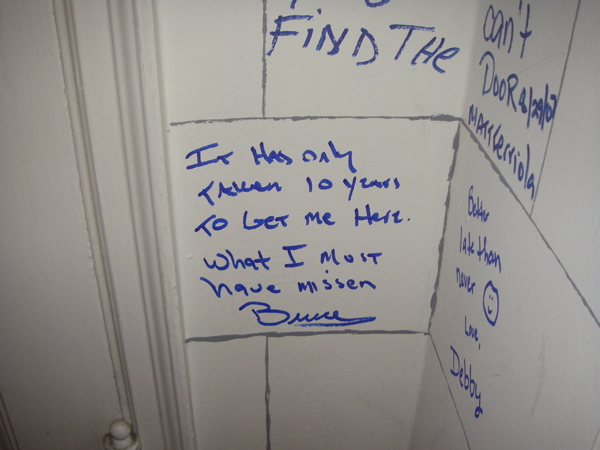 FIND THE
can't
DOOR 8/29/07
MATT Cerriola
It Has only
TAKEN 10 years
TO GET ME HERE.
What I MUST
have missen
Bruce
Better
late than
never
Love,
Debby